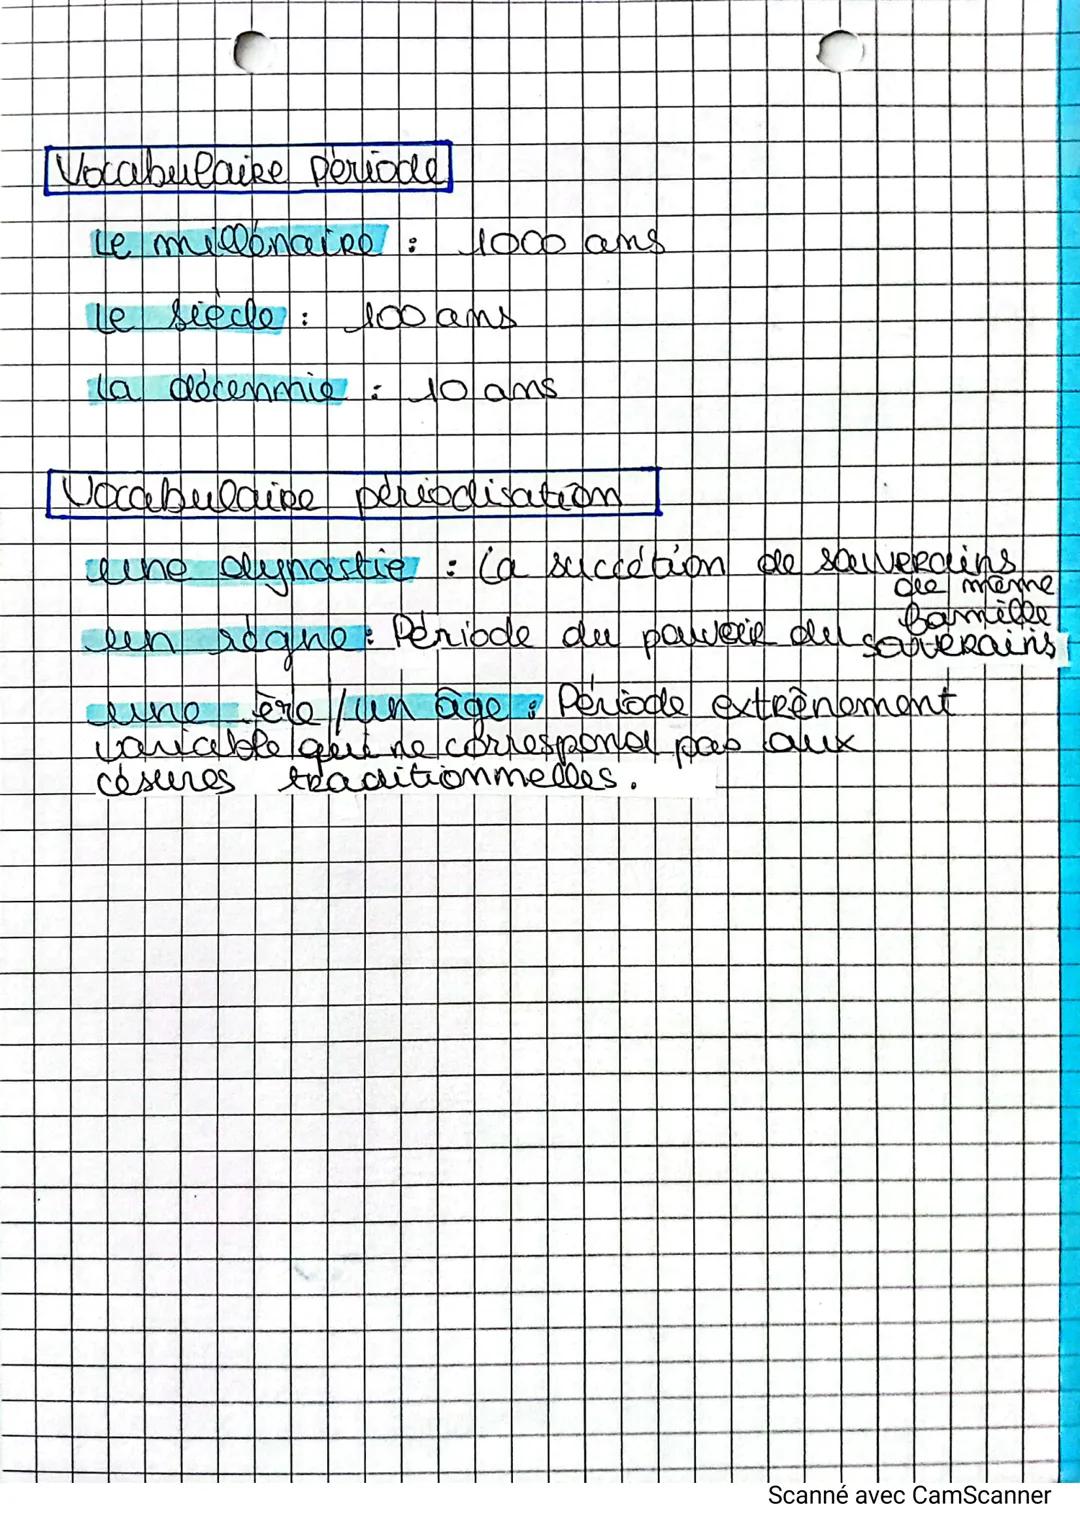 Vocabulaire Période
Le millénaire : 1000 ans
Le siècle : 100 ans
La décennie : 10 ans
Vocabulaire périodisation
une dynastie : La succétion de souverains
de même
famille
un règne : Période du pouvoir du souverains
une ère / un âge : Période extrênement
variable qui ne correspond pas aux
césures traditionnelles.
Scanné avec CamScanner